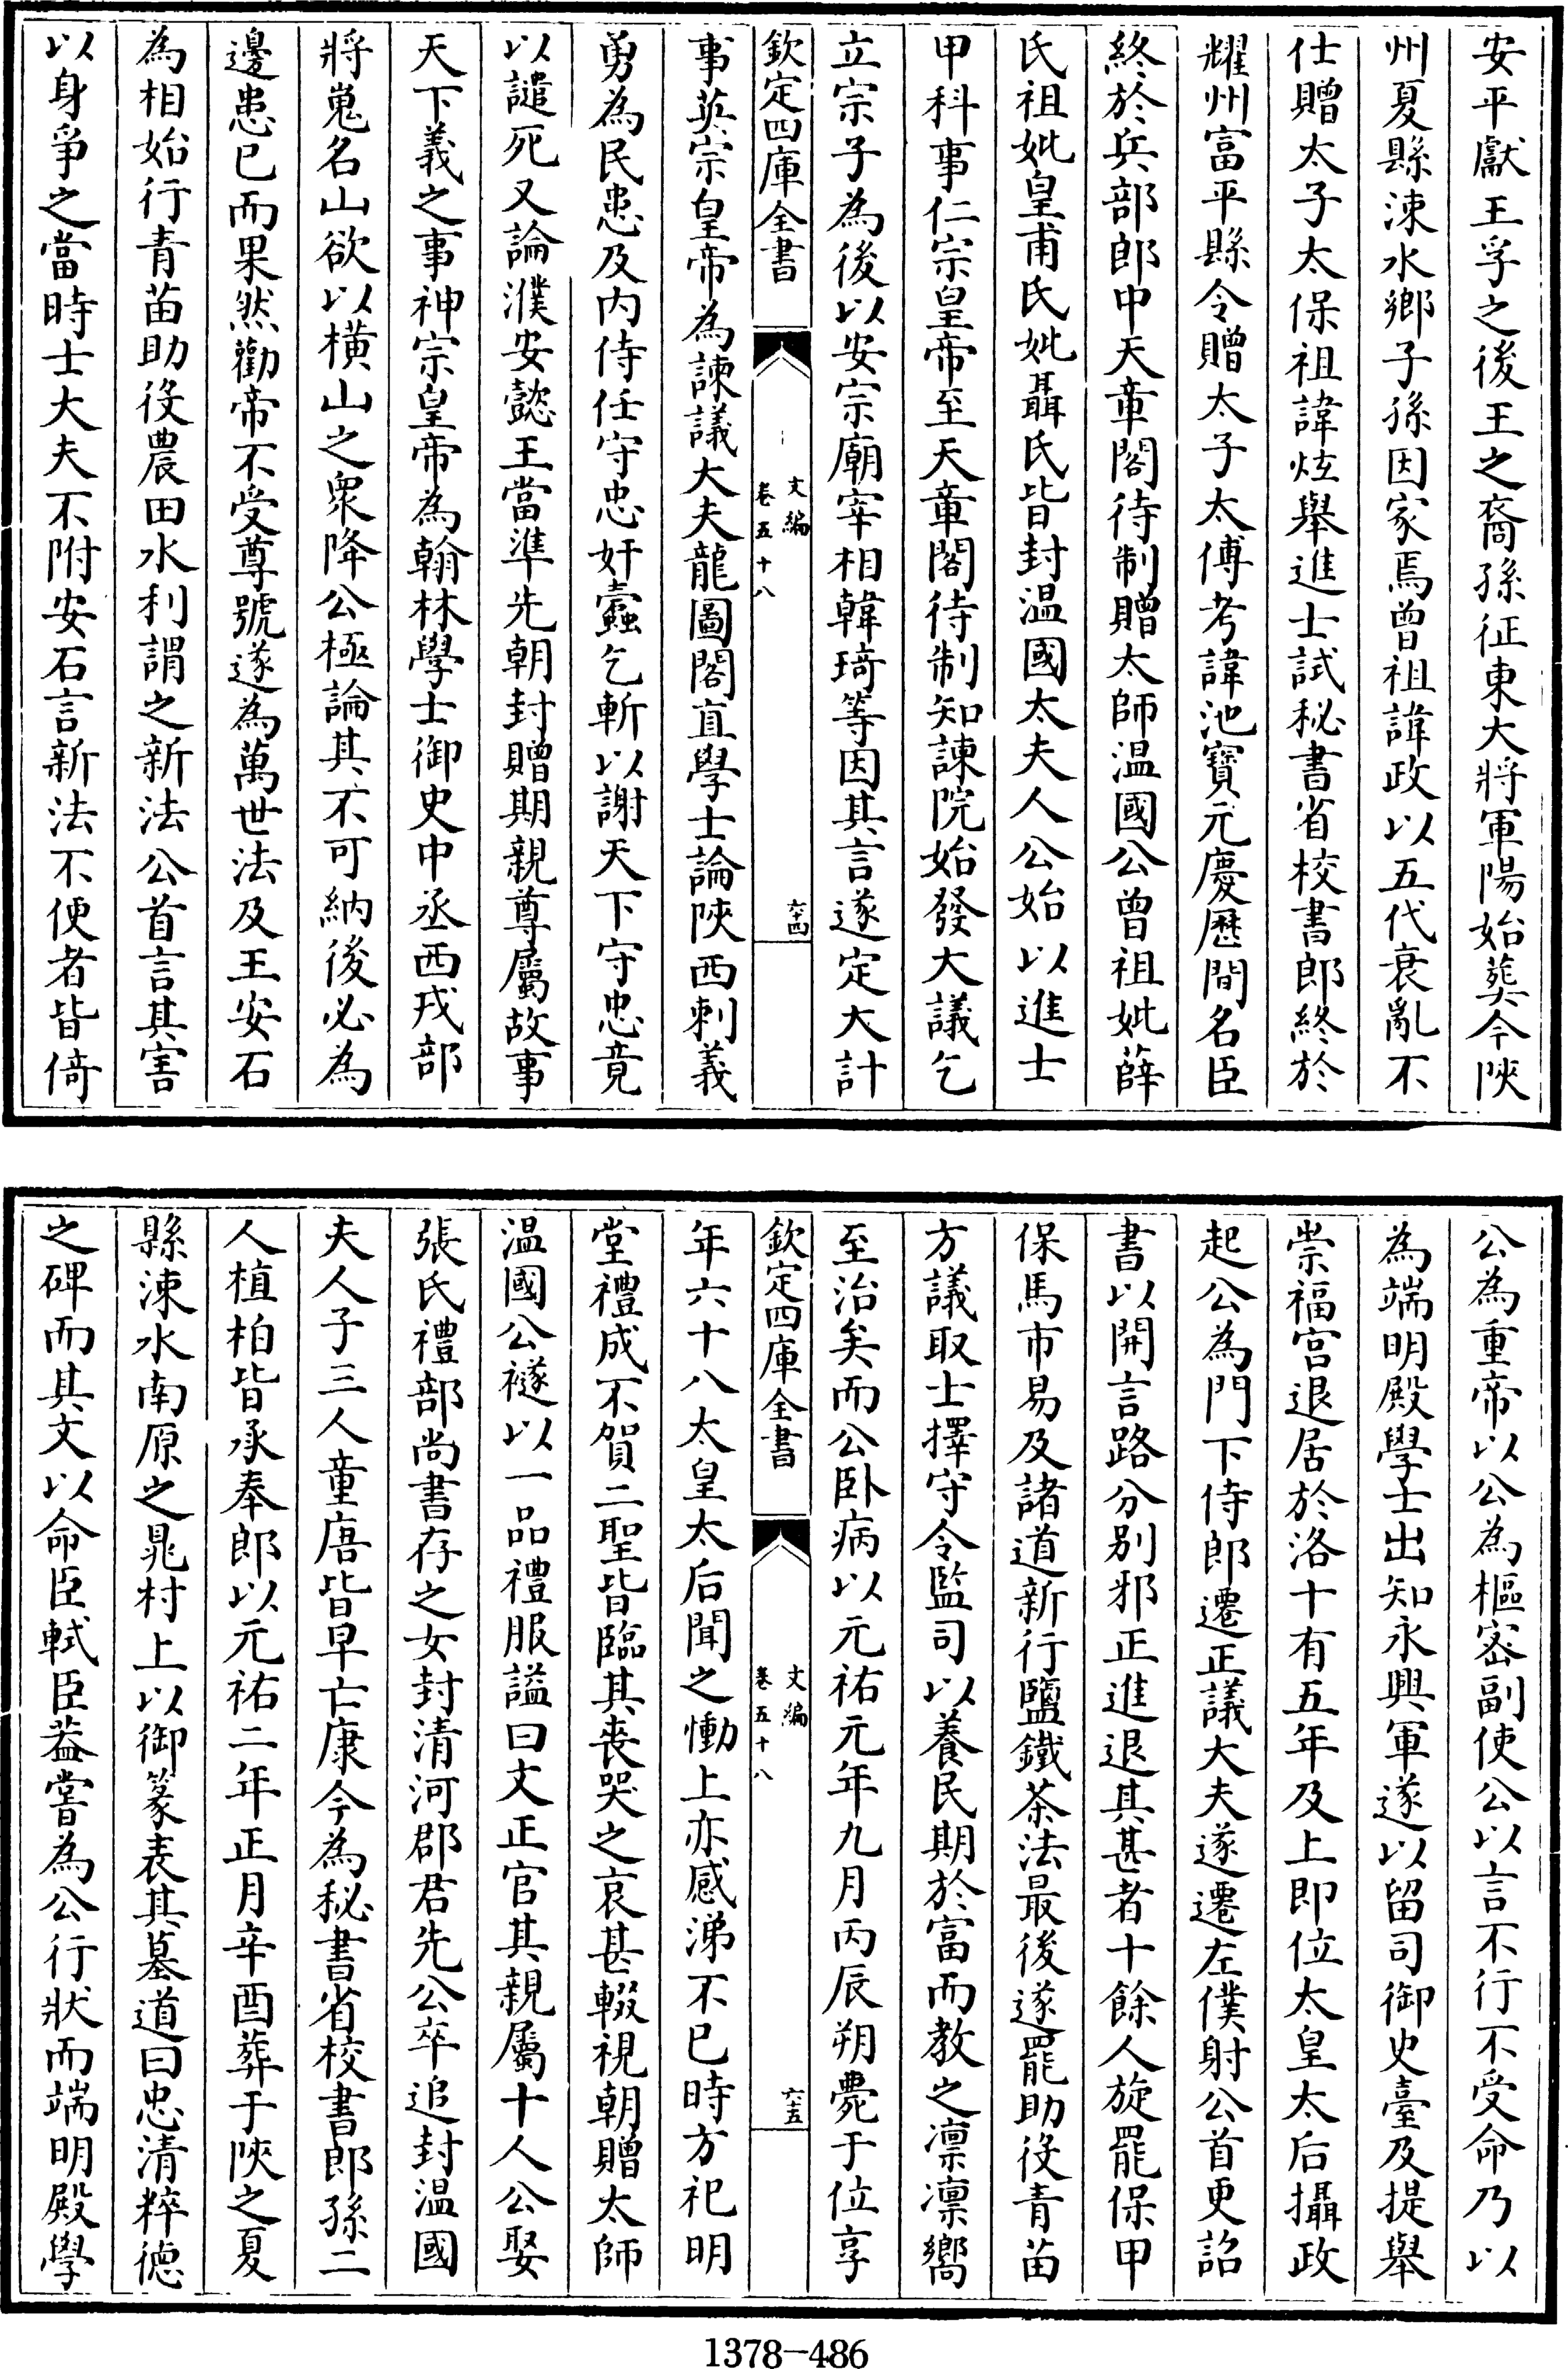 安平獻王孚之後王之裔孫征東大將軍陽始葬今陜
州夏縣涑水鄉子孫因家焉曾祖諱政以五代衰亂不
仕贈太子太保祖諱炫舉進士試秘書省校書郎終於
耀州富平縣令贈太子太傅考諱池寶元慶歷間名臣
終於兵部郎中天章閣待制贈太師温國公曾祖妣薛
氏祖妣皇甫氏妣聶氏皆封温國太夫人公始以進士
甲科事仁宗皇帝至天章閣待制知諫院始發大議乞
立宗子為後以安宗廟宰相韓琦等因其言遂定大計
欽定四庫全書
文編
卷五十八
六十四
事英宗皇帝為諫議大夫龍圖閣直學士論陜西刺義
勇為民患及内侍任守忠奸蠹乞斬以謝天下守忠竟
以譴死又論濮安懿王當準先朝封贈期親尊屬故事
天下義之事神宗皇帝為翰林學士御史中丞西戎部
將嵬名山欲以橫山之衆降公極論其不可納後必為
邊患已而果然勸帝不受尊號遂為萬世法及王安石
為相始行青苗助役農田水利謂之新法公首言其害
以身爭之當時士大夫不附安石言新法不便者皆倚
公為重帝以公為樞密副使公以言不行不受命乃以
為端明殿學士出知永興軍遂以留司御史臺及提舉
崇福宫退居於洛十有五年及上即位太皇太后攝政
起公為門下侍郎遷正議大夫遂遷左僕射公首更詔
書以開言路分别邪正進退其甚者十餘人旋罷保甲
保馬市易及諸道新行鹽鐵茶法最後遂罷助役青苗
方議取士擇守令監司以養民期於富而教之凛凛嚮
至治矣而公卧病以元祐元年九月丙辰朔薨于位享
欽定四庫全書
文編
卷五十八
六十五
年六十八太皇太后聞之慟上亦感涕不已時方祀明
堂禮成不賀二聖皆臨其喪哭之哀甚輟視朝贈太師
温國公襚以一品禮服謚曰文正官其親屬十人公娶
張氏禮部尚書存之女封清河郡君先公卒追封温國
夫人子三人童唐皆早亡康今為秘書省校書郎孫二
人植柏皆承奉郎以元祐二年正月辛酉葬于陜之夏
縣涑水南原之晁村上以御篆表其墓道曰忠清粹德
之碑而其文以命臣軾臣葢嘗為公行狀而端明殿學
1378-486